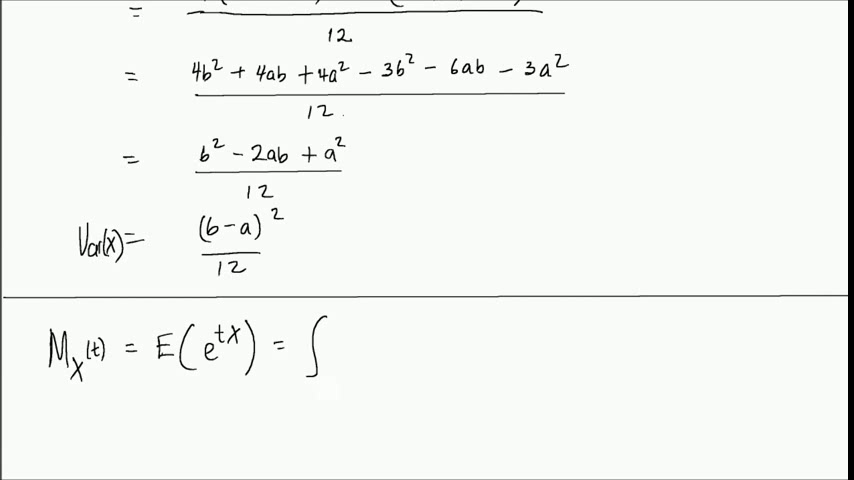 =
12
= 4b² + 4ab + 4a² − 3b² − 6ab − 3a²
12
= b² − 2ab + a²
12
Var(X) = (b−a)²
12
M_X(t) = E(e^{tX}) = ∫